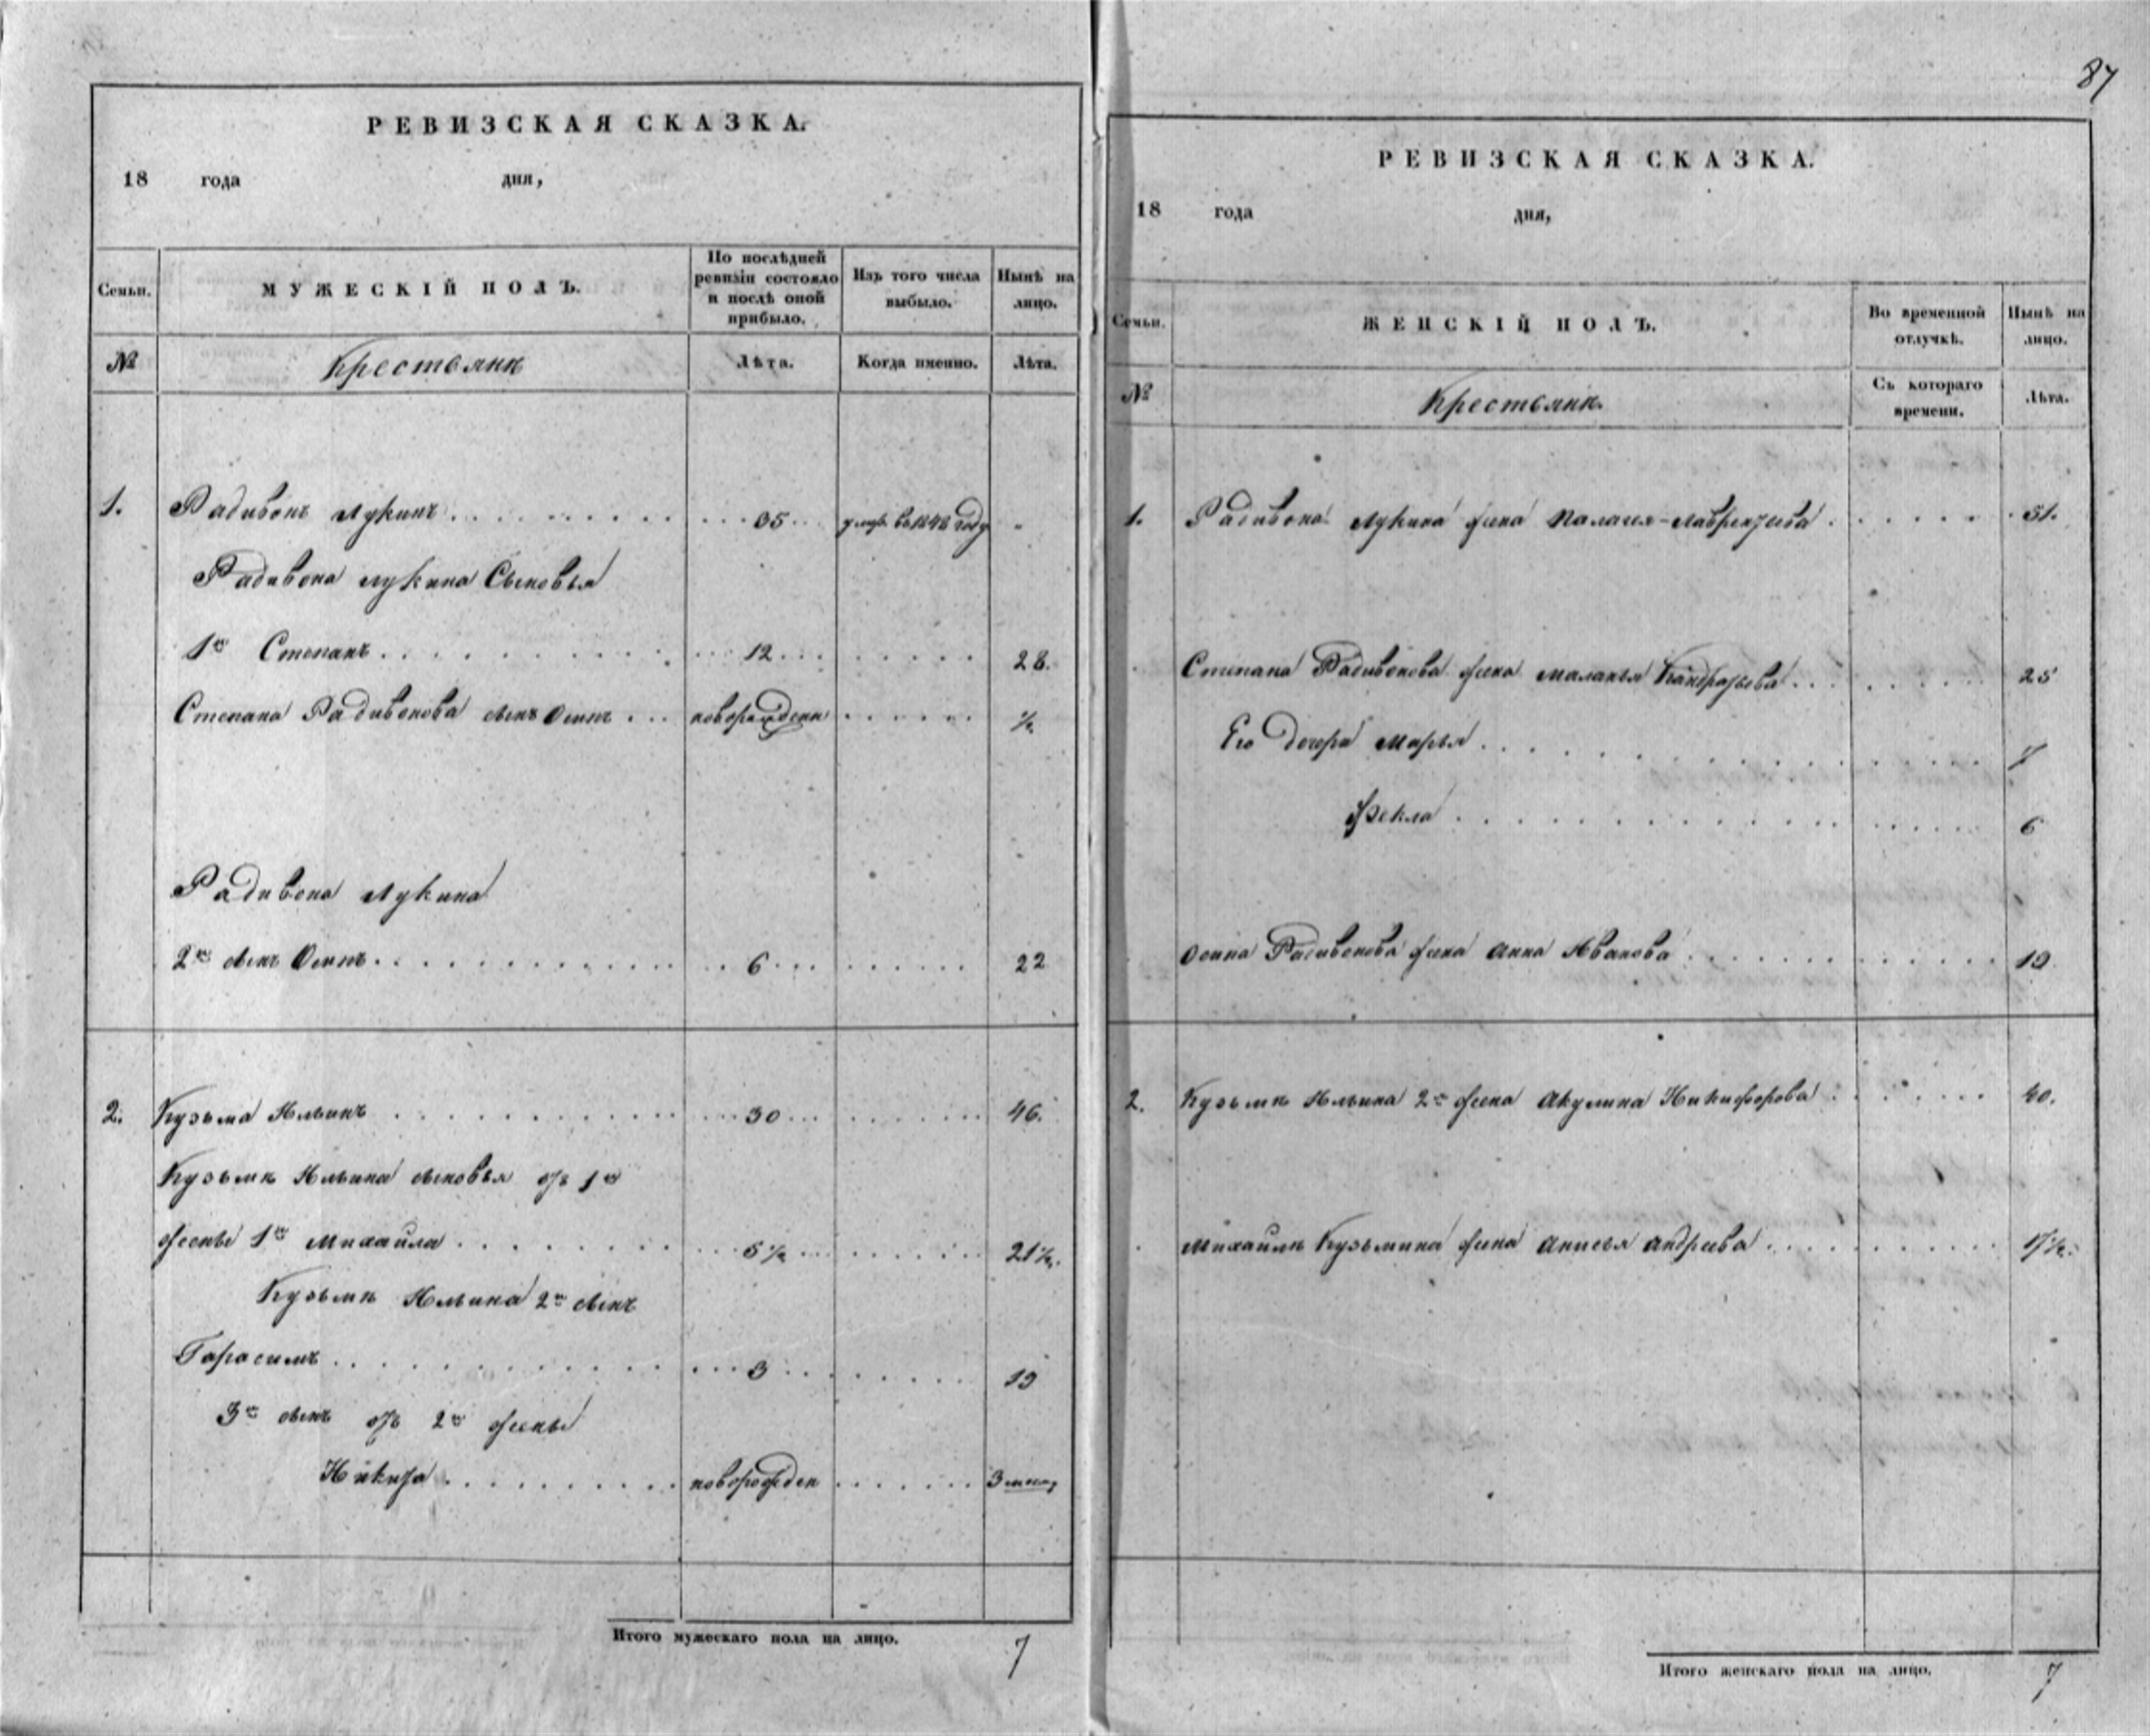 87
РЕВИЗСКАЯ СКАЗКА.
18 года дня,
Семьи. МУЖЕСКІЙ ПОЛЪ. По послѣдней ревизіи состояло и послѣ оной прибыло. Изъ того числа выбыло. Нынѣ на лицо.
№ Крестьянѣ Лѣта. Когда именно. Лѣта.
1. Радивонъ Лукинъ 35 умр. въ 1848 году
Радивона Лукина Сыновья
1й Степанъ 12 28.
Степана Радивонова сынъ Осипъ новорожденн ½
Радивона Лукина
2й сынъ Осипъ 6 22
2. Кузьма Ильинъ 30 46.
Кузьмы Ильина сыновья отъ 1й
жены 1й Михайла 5½ 21½.
Кузьмы Ильина 2й сынъ
Гарасимъ 3 19
3й сынъ отъ 2й жены
Никита новорожден 3 месяц
Итого мужескаго пола на лицо. 7
РЕВИЗСКАЯ СКАЗКА.
18 года дня,
Семьи. ЖЕНСКІЙ ПОЛЪ. Во временной отлучкѣ. Нынѣ на лицо.
№ Крестьянѣ Съ котораго времени. Лѣта.
1. Радивона Лукина жена Палагея Лаврентьева 51.
Степана Радивонова жена Маланья Кандратьева 25
Его дочери Марья 7
Фекла 6
Осипа Радивонова жена Анна Иванова 19
2. Кузьмы Ильина 2я жена Акулина Никифорова 40.
Михайлы Кузьмина жена Анисья Андреева 17½.
Итого женскаго пола на лицо. 7